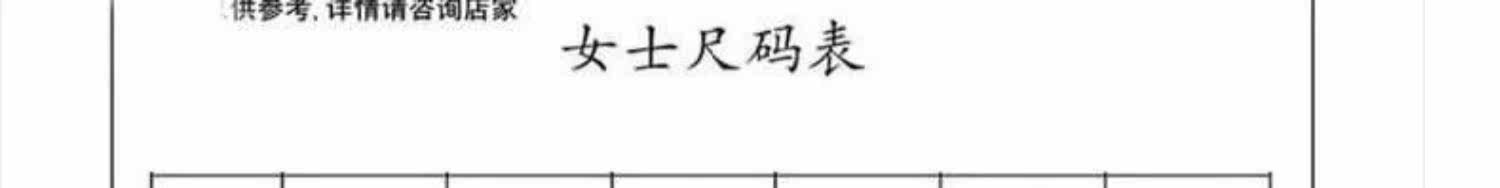 供参考,详情请咨询店家
女士尺码表